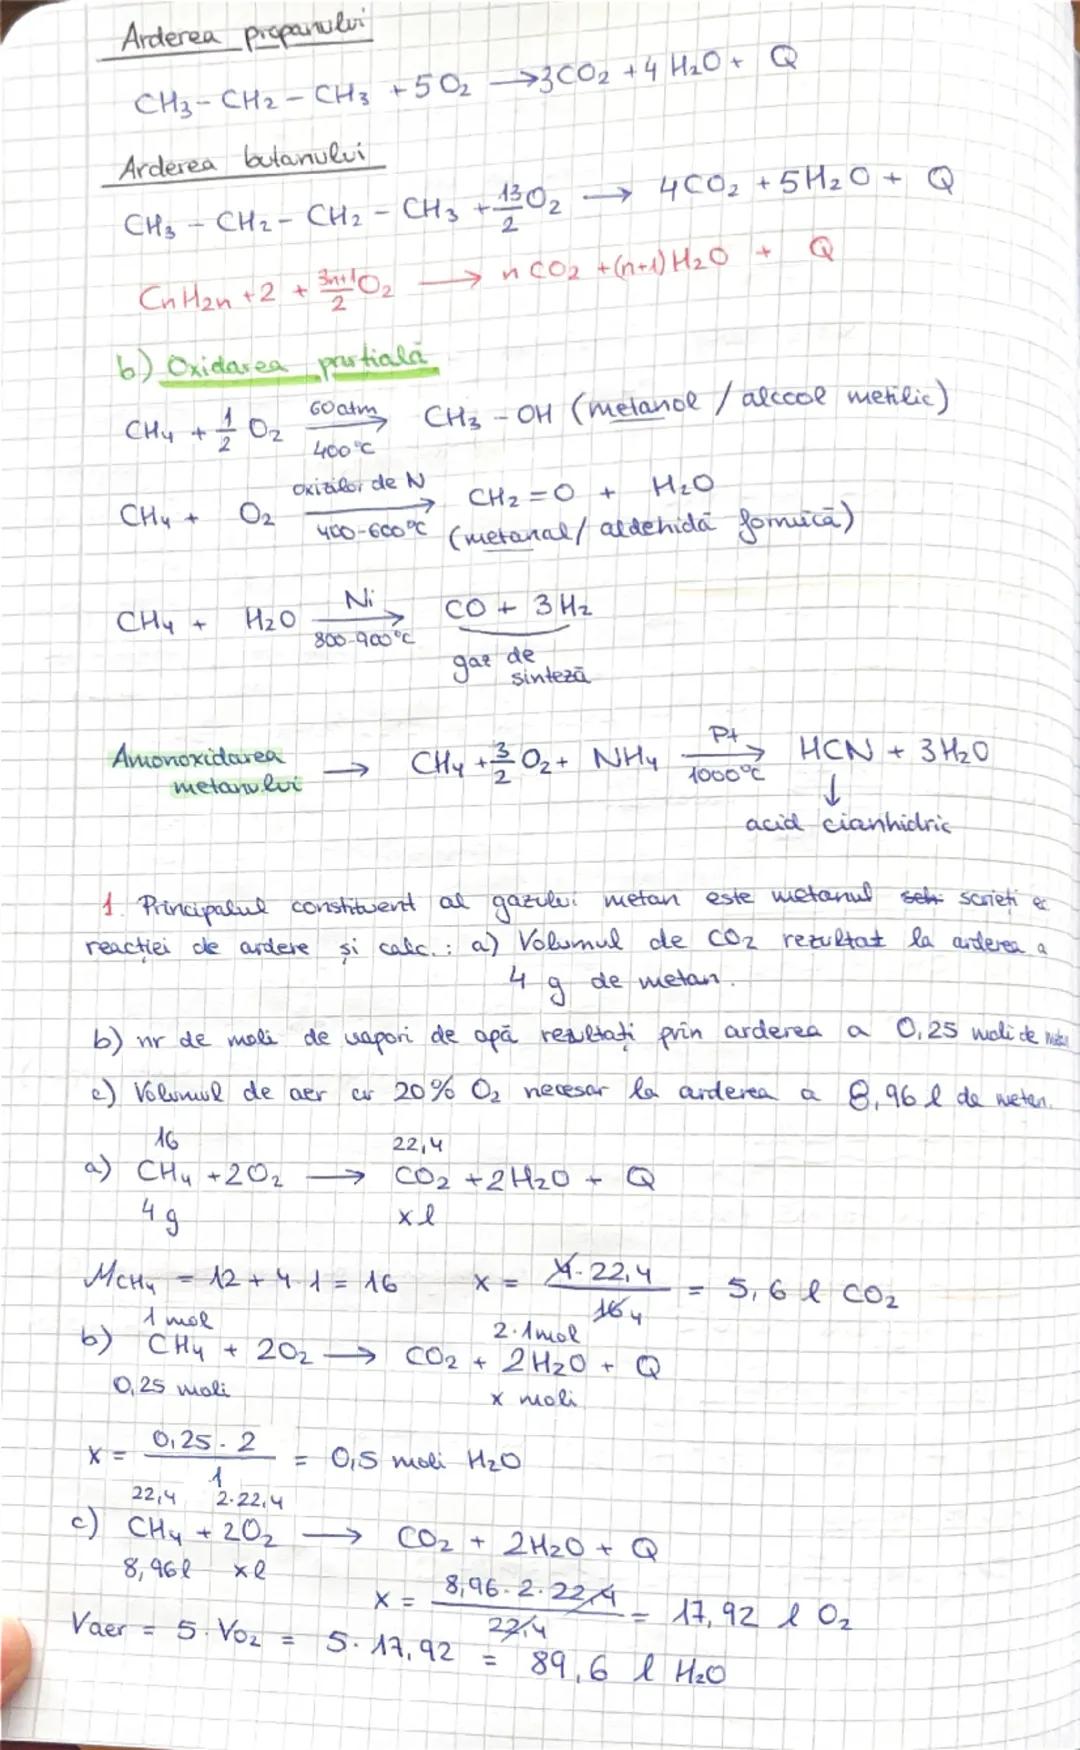 Arderea propanului
CH3 - CH2 - CH3 + 5 O2 → 3CO2 + 4 H2O + Q
Arderea butanului
CH3 - CH2 - CH2 - CH3 + 13/2 O2 → 4CO2 + 5H2O + Q
CnH2n+2 + 3n+1/2 O2 → n CO2 + (n+1) H2O + Q
b) Oxidarea parțială
CH4 + 1/2 O2 60 atm → 400°C CH3 - OH (metanol / alcool metilic)
CH4 + O2 oxizilor de N → 400-600°C CH2 = O + H2O
(metanal / aldehidă formică)
CH4 + H2O Ni → 800-900°C CO + 3 H2
gaz de
sinteză
Amonoxidarea
metanului → CH4 + 3/2 O2 + NH4 Pt → 1000°C HCN + 3 H2O
↓
acid cianhidric
1. Principalul constituent al gazului metan este metanul scrieți ec
reacției de ardere și calc.: a) Volumul de CO2 rezultat la arderea a
4 g de metan.
b) nr de moli de vapori de apă rezultați prin arderea a 0,25 moli de
c) Volumul de aer cu 20% O2 necesar la arderea a 8,96 l de metan.
16 22,4
a) CH4 + 2O2 → CO2 + 2H2O + Q
4 g x l
MCH4 = 12 + 4·1 = 16 x = 4·22,4 / 16 4 = 5,6 l CO2
1 mol 2·1mol
b) CH4 + 2O2 → CO2 + 2H2O + Q
0,25 moli x moli
x = 0,25·2 / 1 = 0,5 moli H2O
22,4 2·22,4
c) CH4 + 2O2 → CO2 + 2H2O + Q
8,96 l x l
x = 8,96·2·22,4 / 22,4 = 17,92 l O2
Vaer = 5·VO2 = 5·17,92 = 89,6 l H2O